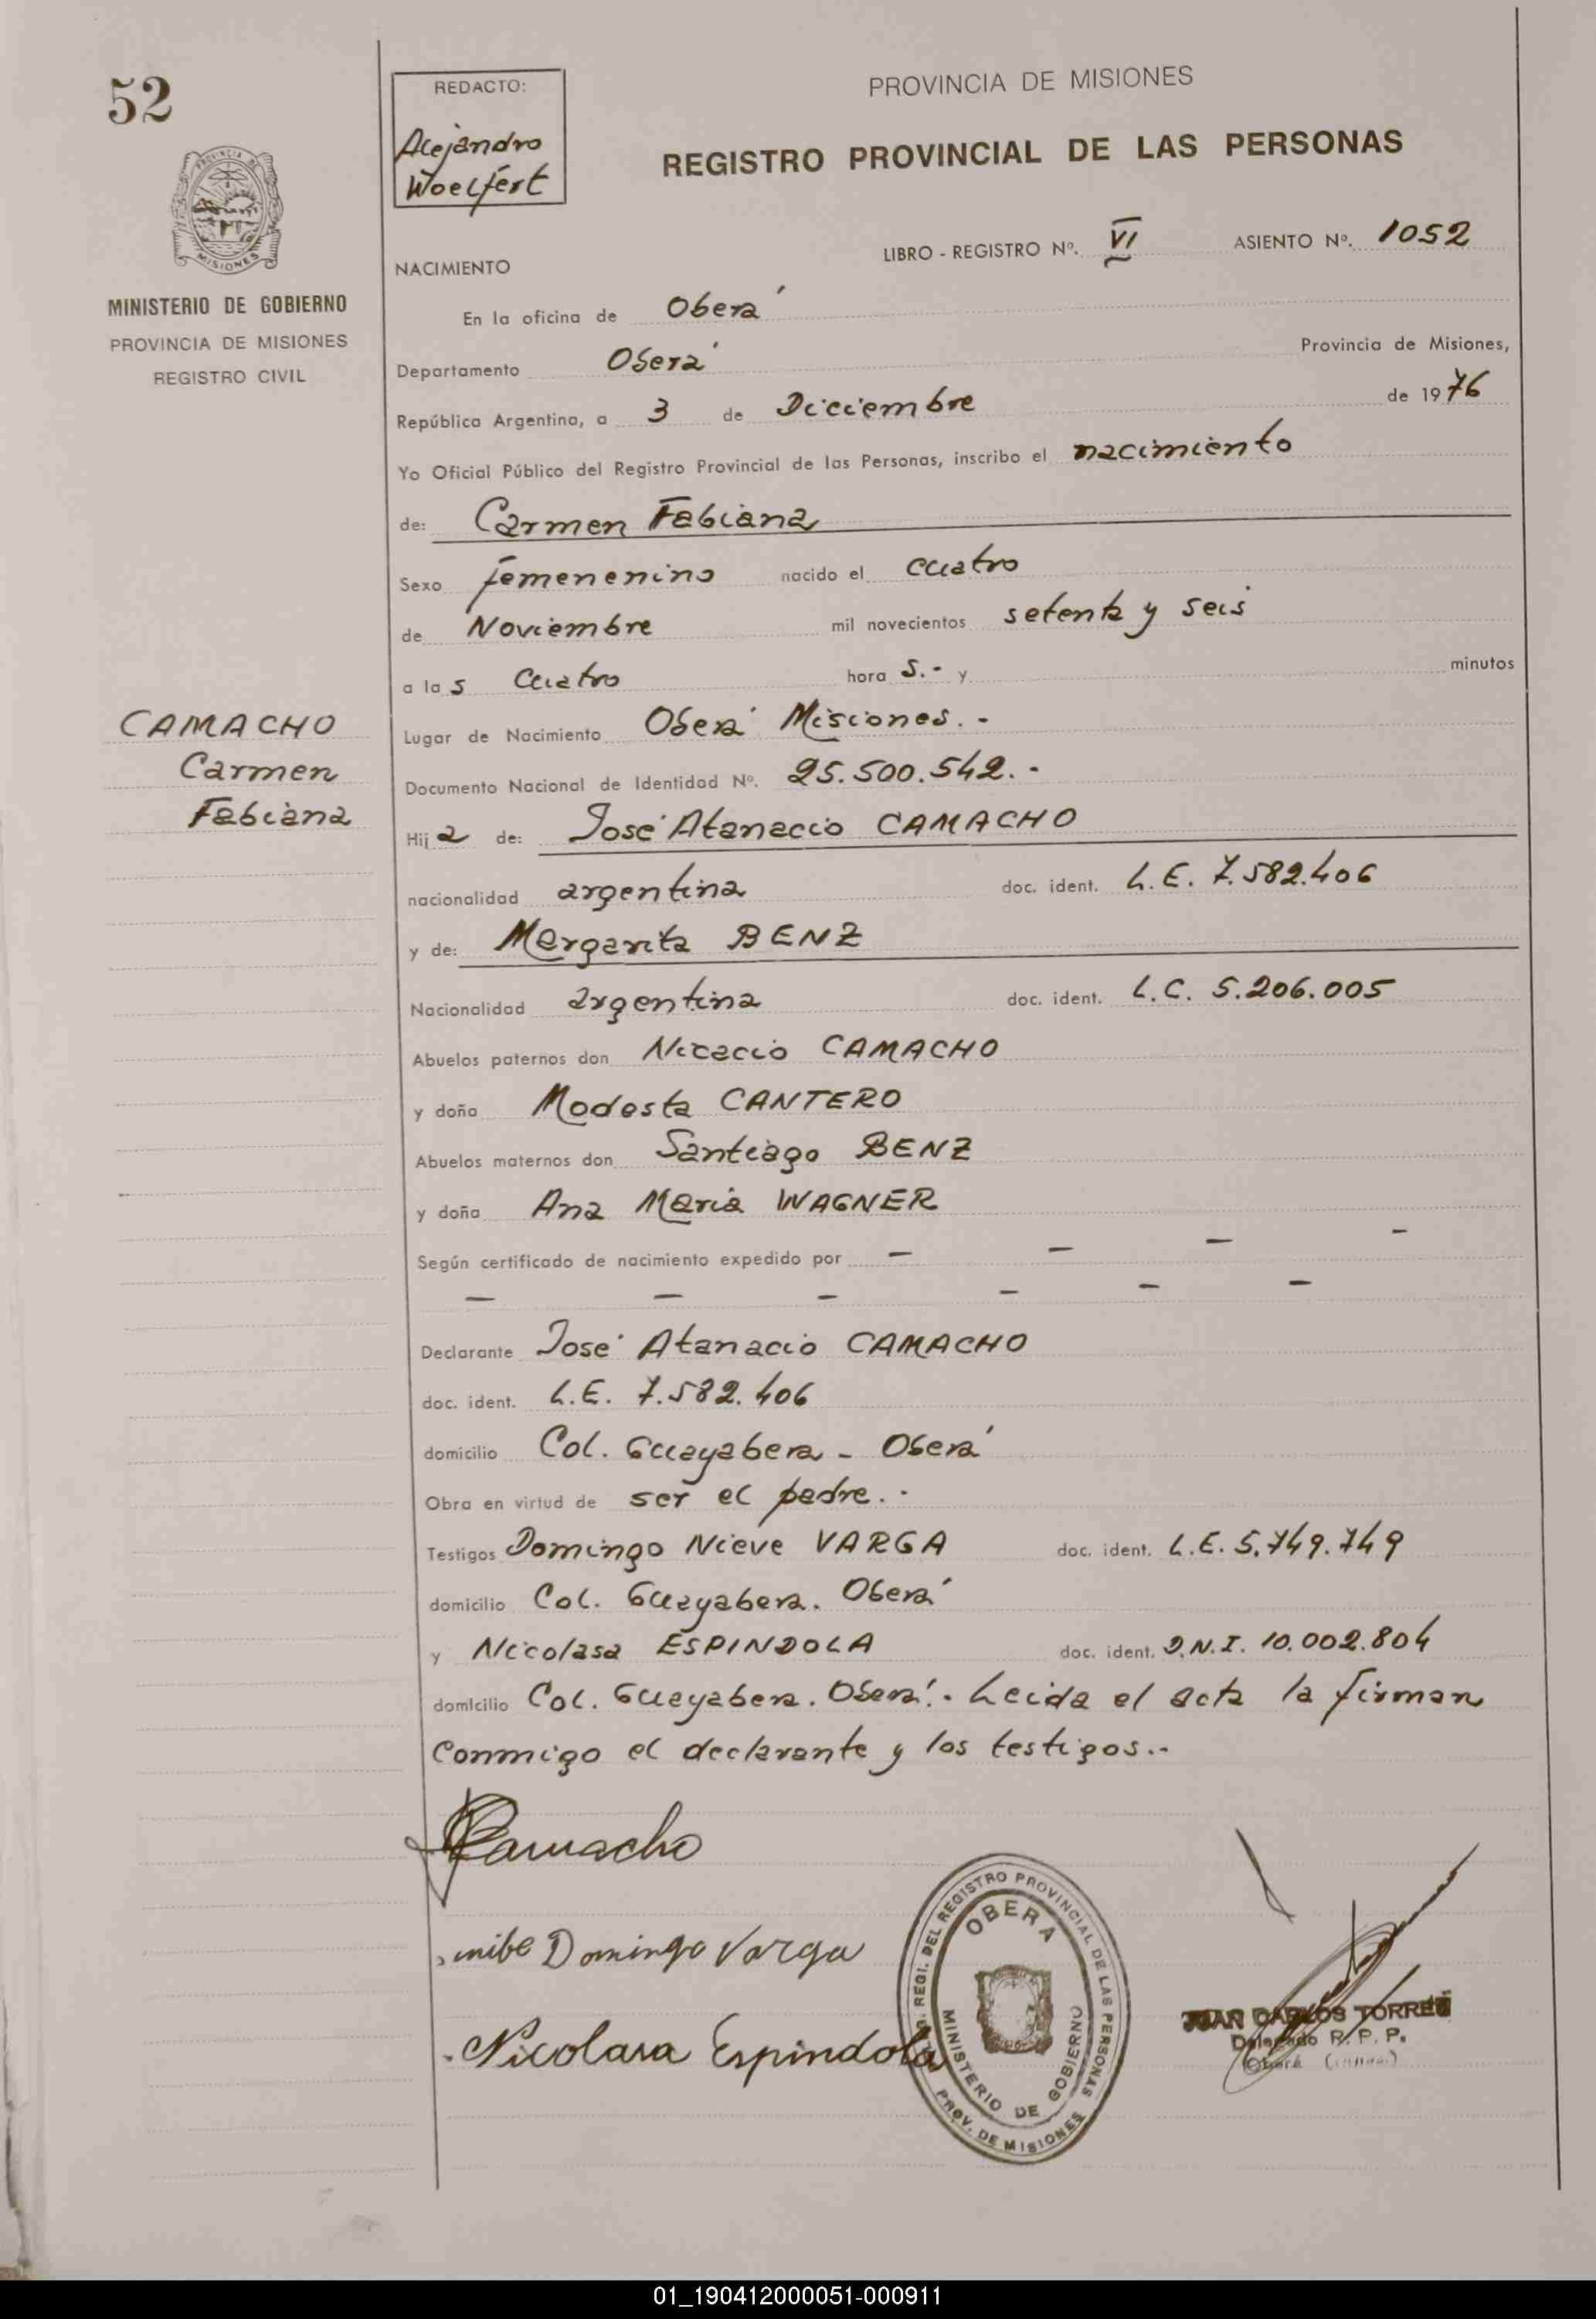 52
REDACTO:
Alejandro
Woelfert
PROVINCIA DE MISIONES
REGISTRO PROVINCIAL DE LAS PERSONAS
PROVINCIA DE
MISIONES
MINISTERIO DE GOBIERNO
PROVINCIA DE MISIONES
REGISTRO CIVIL
LIBRO - REGISTRO Nº. VI ASIENTO Nº. 1052
NACIMIENTO
En la oficina de Oberá
Departamento Oberá Provincia de Misiones,
República Argentina, a 3 de Diciembre de 1976
Yo Oficial Público del Registro Provincial de las Personas, inscribo el nacimiento
de: Carmen Fabiana
Sexo femenenino nacido el cuatro
de Noviembre mil novecientos setenta y seis
a las cuatro hora s.- y minutos
Lugar de Nacimiento Oberá Misiones.-
CAMACHO
Carmen
Fabiana
Documento Nacional de Identidad Nº. 25.500.542.-
Hija de: José Atanacio CAMACHO
nacionalidad argentina doc. ident. L.E. 7.582.406
y de: Margarita BENZ
Nacionalidad argentina doc. ident. L.C. 5.206.005
Abuelos paternos don Nicacio CAMACHO
y doña Modesta CANTERO
Abuelos maternos don Santiago BENZ
y doña Ana Maria WAGNER
Según certificado de nacimiento expedido por — — — —
— — — — — —
Declarante José Atanacio CAMACHO
doc. ident. L.E. 7.582.406
domicilio Col. Guayabera - Oberá
Obra en virtud de ser el padre.-
Testigos Domingo Nieve VARGA doc. ident. L.E. 5.749.749
domicilio Col. Guayabera. Oberá
y Nicolasa ESPINDOLA doc. ident. D.N.I. 10.002.804
domicilio Col. Guayabera. Oberá.- Leida el acta la firman
conmigo el declarante y los testigos.-
Camacho
Domingo Varga
Nicolasa Espindola
REGI. DEL REGISTRO PROVINCIAL DE LAS PERSONAS
OBERA
MINISTERIO DE GOBIERNO
PROV. DE MISIONES
JUAN CARLOS TORRES
Delegado R. P. P.
Oberá
01_190412000051-000911